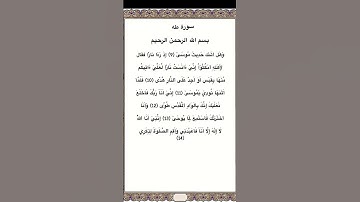 سورة طه
بسم الله الرحمن الرحيم
وَهَلْ أَتَىٰكَ حَدِيثُ مُوسَىٰٓ (9) إِذْ رَءَا نَارًا فَقَالَ
لِأَهْلِهِ ٱمْكُثُوٓا۟ إِنِّىٓ ءَانَسْتُ نَارًا لَّعَلِّىٓ ءَاتِيكُم
مِّنْهَا بِقَبَسٍ أَوْ أَجِدُ عَلَى ٱلنَّارِ هُدًى (10) فَلَمَّآ
أَتَىٰهَا نُودِىَ يَٰمُوسَىٰٓ (11) إِنِّىٓ أَنَا۠ رَبُّكَ فَٱخْلَعْ
نَعْلَيْكَ إِنَّكَ بِٱلْوَادِ ٱلْمُقَدَّسِ طُوًى (12) وَأَنَا
ٱخْتَرْتُكَ فَٱسْتَمِعْ لِمَا يُوحَىٰٓ (13) إِنَّنِىٓ أَنَا ٱللَّهُ
لَآ إِلَٰهَ إِلَّآ أَنَا۠ فَٱعْبُدْنِى وَأَقِمِ ٱلصَّلَوٰةَ لِذِكْرِىٓ
(14)